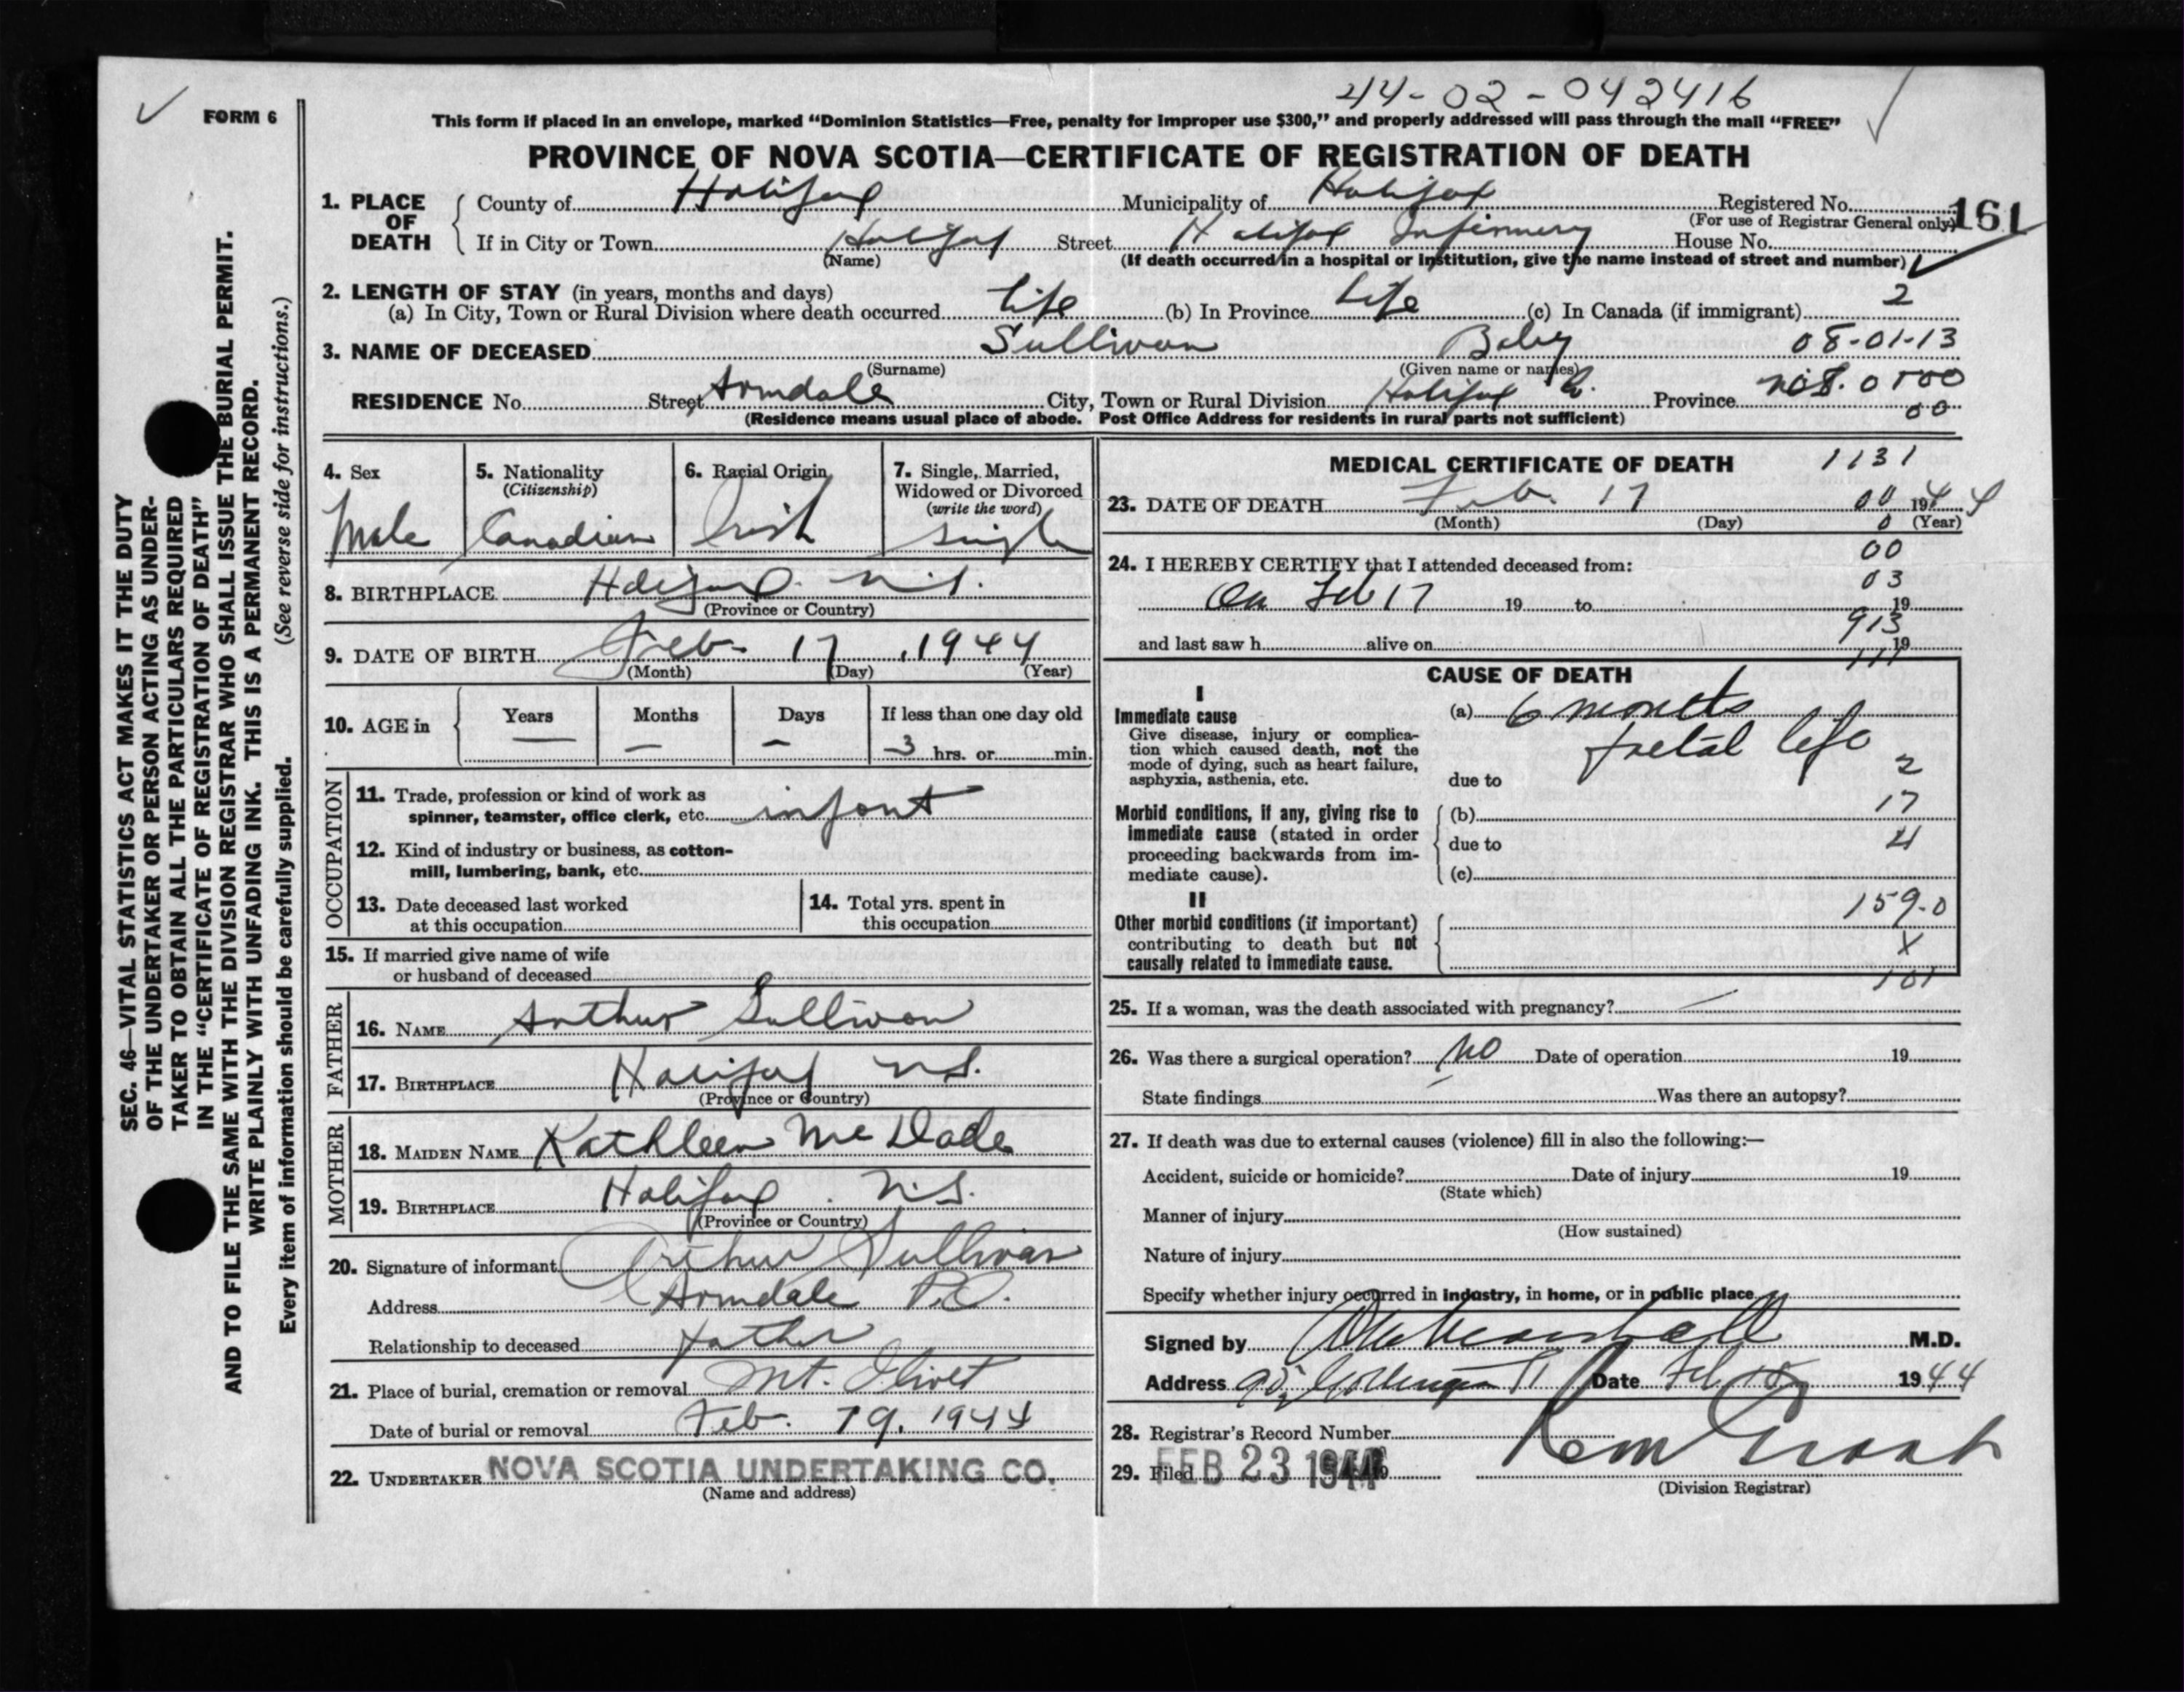 44-02-042416
FORM 6
This form if placed in an envelope, marked “Dominion Statistics—Free, penalty for improper use $300,” and properly addressed will pass through the mail “FREE”
PROVINCE OF NOVA SCOTIA—CERTIFICATE OF REGISTRATION OF DEATH
1. PLACE OF DEATH
County of Halifax Municipality of Halifax Registered No. 161
(For use of Registrar General only)
If in City or Town Halifax Street Halifax Infirmary House No.
(Name) (If death occurred in a hospital or institution, give the name instead of street and number)
2. LENGTH OF STAY (in years, months and days)
(a) In City, Town or Rural Division where death occurred Life (b) In Province Life (c) In Canada (if immigrant) 2
3. NAME OF DECEASED Sullivan Baby 08-01-13
(Surname) (Given name or names)
RESIDENCE No. Street Armdale City, Town or Rural Division Halifax Co. Province N.S. 0500
00
(Residence means usual place of abode. Post Office Address for residents in rural parts not sufficient)
4. Sex
Male
5. Nationality
(Citizenship)
Canadian
6. Racial Origin
Irish
7. Single, Married,
Widowed or Divorced
(write the word)
Single
8. BIRTHPLACE Halifax N.S.
(Province or Country)
9. DATE OF BIRTH Feb. 17, 1944
(Month) (Day) (Year)
10. AGE in Years — Months — Days — If less than one day old
3 hrs. or min.
OCCUPATION
11. Trade, profession or kind of work as
spinner, teamster, office clerk, etc. infant
12. Kind of industry or business, as cotton-
mill, lumbering, bank, etc.
13. Date deceased last worked
at this occupation
14. Total yrs. spent in
this occupation
15. If married give name of wife
or husband of deceased
FATHER
16. NAME Arthur Sullivan
17. BIRTHPLACE Halifax N.S.
(Province or Country)
MOTHER
18. MAIDEN NAME Kathleen McDade
19. BIRTHPLACE Halifax N.S.
(Province or Country)
20. Signature of informant Arthur Sullivan
Address Armdale P.O.
Relationship to deceased father
21. Place of burial, cremation or removal Mt. Olivet
Date of burial or removal Feb. 19, 1944
22. UNDERTAKER NOVA SCOTIA UNDERTAKING CO.
(Name and address)
MEDICAL CERTIFICATE OF DEATH 1131
23. DATE OF DEATH Feb. 17 00 1944
(Month) (Day) 0 (Year)
00
24. I HEREBY CERTIFY that I attended deceased from:
03
On Feb 17 19 to 19
913
and last saw h alive on 19
111
CAUSE OF DEATH
I
Immediate cause
Give disease, injury or complica-
tion which caused death, not the
mode of dying, such as heart failure,
asphyxia, asthenia, etc.
(a) 6 months
foetal life
2
due to
Morbid conditions, if any, giving rise to
immediate cause (stated in order
proceeding backwards from im-
mediate cause).
(b) 17
due to 4
(c)
II
Other morbid conditions (if important)
contributing to death but not
causally related to immediate cause.
159.0
X
101
25. If a woman, was the death associated with pregnancy? —
26. Was there a surgical operation? No Date of operation 19
State findings Was there an autopsy?
27. If death was due to external causes (violence) fill in also the following:—
Accident, suicide or homicide? Date of injury 19
(State which)
Manner of injury
(How sustained)
Nature of injury
Specify whether injury occurred in industry, in home, or in public place
Signed by M.D.
Address Gottingen St Date Feb 18 1944
28. Registrar's Record Number
29. Filed FEB 23 1944
(Division Registrar)
SEC. 46—VITAL STATISTICS ACT MAKES IT THE DUTY
OF THE UNDERTAKER OR PERSON ACTING AS UNDER-
TAKER TO OBTAIN ALL THE PARTICULARS REQUIRED
IN THE “CERTIFICATE OF REGISTRATION OF DEATH”
AND TO FILE THE SAME WITH THE DIVISION REGISTRAR WHO SHALL ISSUE THE BURIAL PERMIT.
WRITE PLAINLY WITH UNFADING INK. THIS IS A PERMANENT RECORD.
Every item of information should be carefully supplied. (See reverse side for instructions.)